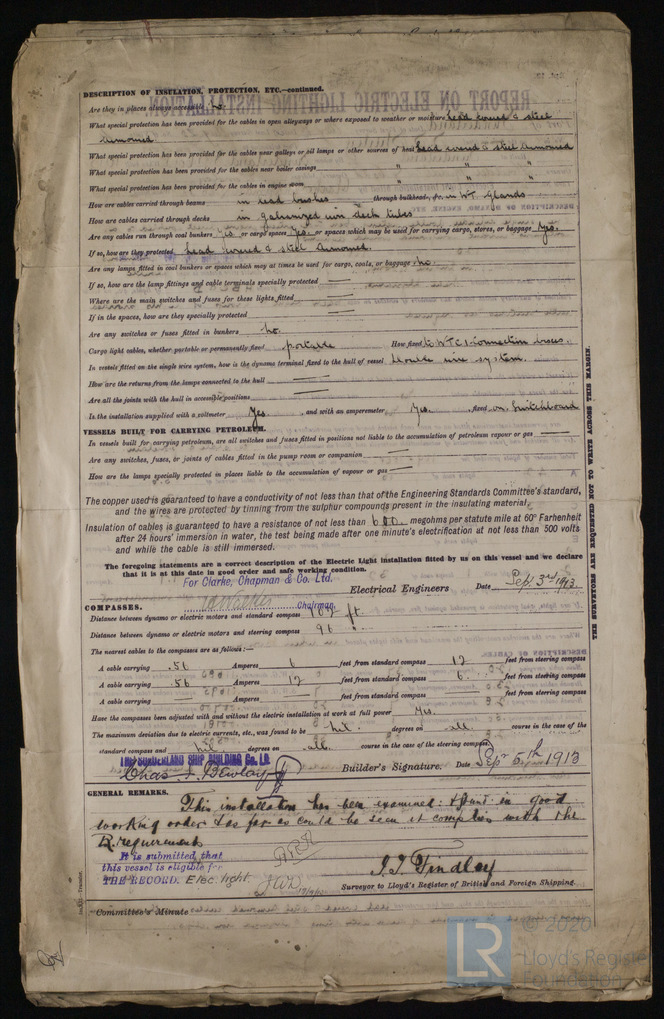 DESCRIPTION OF INSULATION, PROTECTION, ETC.—continued.
Are they in places always accessible No.
What special protection has been provided for the cables in open alleyways or where exposed to weather or moisture lead covered & steel
armoured
What special protection has been provided for the cables near galleys or oil lamps or other sources of heat lead covered & steel armoured
What special protection has been provided for the cables near boiler casings " " "
What special protection has been provided for the cables in engine room " " "
How are cables carried through beams in lead bushes through bulkheads, &c. in W.T. Glands
How are cables carried through decks in galvanized iron deck tubes
Are any cables run through coal bunkers Yes or cargo spaces Yes or spaces which may be used for carrying cargo, stores, or baggage Yes.
If so, how are they protected lead covered & steel armoured.
Are any lamps fitted in coal bunkers or spaces which may at times be used for cargo, coals, or baggage No.
If so, how are the lamp fittings and cable terminals specially protected —
Where are the main switches and fuses for these lights fitted —
If in the spaces, how are they specially protected —
Are any switches or fuses fitted in bunkers No.
Cargo light cables, whether portable or permanently fixed portable How fixed to W.T.C.I. connection boxes.
In vessels fitted on the single wire system, how is the dynamo terminal fixed to the hull of vessel Double wire system.
How are the returns from the lamps connected to the hull —
Are all the joints with the hull in accessible positions —
Is the installation supplied with a voltmeter Yes. , and with an amperemeter Yes. , fixed on Switchboard
VESSELS BUILT FOR CARRYING PETROLEUM.
In vessels built for carrying petroleum, are all switches and fuses fitted in positions not liable to the accumulation of petroleum vapour or gas —
Are any switches, fuses, or joints of cables fitted in the pump room or companion —
How are the lamps specially protected in places liable to the accumulation of vapour or gas —
The copper used is guaranteed to have a conductivity of not less than that of the Engineering Standards Committee's standard,
and the wires are protected by tinning from the sulphur compounds present in the insulating material.
Insulation of cables is guaranteed to have a resistance of not less than 600 megohms per statute mile at 60° Farhenheit
after 24 hours' immersion in water, the test being made after one minute's electrification at not less than 500 volts
and while the cable is still immersed.
The foregoing statements are a correct description of the Electric Light installation fitted by us on this vessel and we declare
that it is at this date in good order and safe working condition.
For Clarke, Chapman & Co. Ltd.
Chairman. Electrical Engineers Date Sep 3rd 1913
COMPASSES.
Distance between dynamo or electric motors and standard compass 102 ft
Distance between dynamo or electric motors and steering compass 96 "
The nearest cables to the compasses are as follows:—
A cable carrying .56 Amperes 6 feet from standard compass 12 feet from steering compass
A cable carrying .56 Amperes 12 feet from standard compass 6 feet from steering compass
A cable carrying — Amperes — feet from standard compass — feet from steering compass
Have the compasses been adjusted with and without the electric installation at work at full power Yes.
The maximum deviation due to electric currents, etc., was found to be Nil. degrees on all. course in the case of the
standard compass and Nil degrees on all. course in the case of the steering compass.
THE SUNDERLAND SHIP BUILDING Co. LD.
Builder's Signature. Date Sepr 5th 1913
GENERAL REMARKS.
This installation has been examined & found in good
working order & as far as could be seen it complies with the
R. requirements
It is submitted that
this vessel is eligible for
THE RECORD. Elec. light
J.J. Findley
Surveyor to Lloyd's Register of British and Foreign Shipping.
Committee's Minute
THE SURVEYORS ARE REQUESTED NOT TO WRITE ACROSS THIS MARGIN.
REPORT ON ELECTRIC LIGHTING INSTALLATION.
LR
© 2020
Lloyd's Register
Foundation